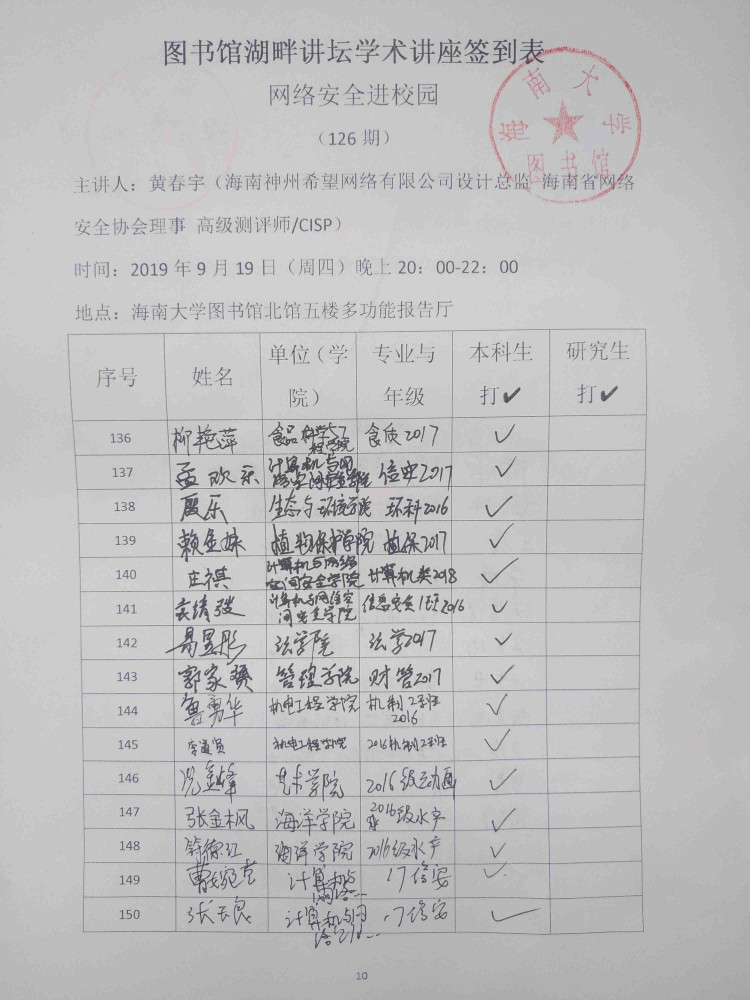 图书馆湖畔讲坛学术讲座签到表
网络安全进校园
（126 期）
海南大学
图书馆
主讲人：黄春宇（海南神州希望网络有限公司设计总监 海南省网络
安全协会理事 高级测评师/CISP）
时间：2019 年 9 月 19 日（周四）晚上 20：00-22：00
地点：海南大学图书馆北馆五楼多功能报告厅
序号 姓名 单位（学院） 专业与年级 本科生打✔ 研究生打✔
136 柳艳萍 食品科学与工程学院 食质2017 ✓
137 孟欢乐 计算机与网络空间安全学院 信安2017 ✓
138 殷乐 生态与环境学院 环科2016 ✓
139 赖金妹 植物保护学院 植保2017 ✓
140 庄祺 计算机与网络空间安全学院 计算机类2018 ✓
141 计算机与网络空间安全学院 信息安全1班2016 ✓
142 易昱彤 法学院 法学2017 ✓
143 郭家赟 管理学院 财管2017 ✓
144 鲁勇华 机电工程学院 机制2班2016 ✓
145 机电工程学院 2016机制2班 ✓
146 艺术学院 2016级动画 ✓
147 张金枫 海洋学院 2016级水产 ✓
148 海洋学院 2016级水产 ✓
149 计算机与网络... 17信安 ✓
150 计算机与网络空间... 17信安 ✓
10